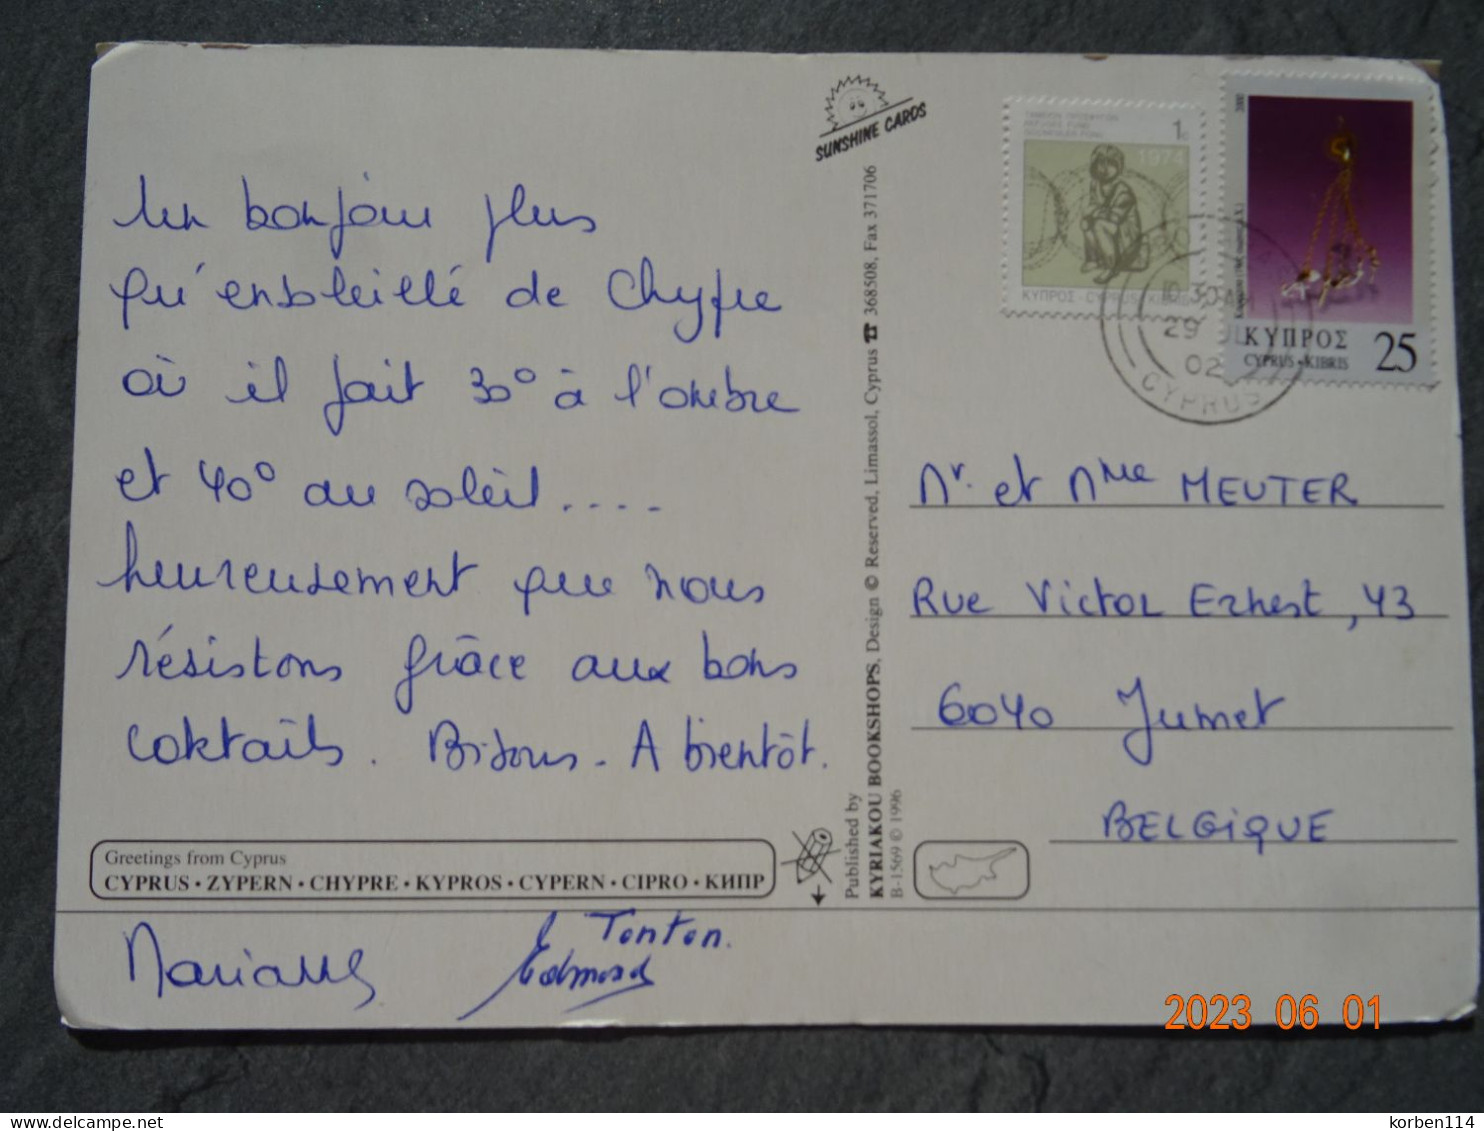 Un bonjour plus
qu'ensoleillé de Chypre
où il fait 30° à l'ombre
et 40° au soleil....
heureusement que nous
résistons grâce aux bons
coktails. Bisous - A bientôt.
Greetings from Cyprus
CYPRUS • ZYPERN • CHYPRE • KYPROS • CYPERN • CIPRO • КИПР
Marianne
Tonton.
Edmond
SUNSHINE CARDS
Published by
KYRIAKOU BOOKSHOPS, Design © Reserved, Limassol, Cyprus ☎ 368508, Fax 371706
B-1569 © 1996
1c
1974
ΚΥΠΡΟΣ - CYPRUS - KIBRIS
2000
ΚΥΠΡΟΣ
CYPRUS • KIBRIS
25
10 30AM
29 JL
02
CYPRUS
Mr. et Mme MEUTER
Rue Victor Ernest, 43
6040 Jumet
BELGIQUE
2023 06 01
korben114
delcampe.net